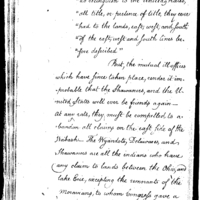 "all title, or pretence of title, they ever
"had to the lands, east, west, and south
"of the east, west and south lines be-
"fore described"
But, the mutual
which have since taken place, render it im-
probable that the Shawanese, and the U-
nited States will ever be friends again —
At any rate, they must be compelled to a-
bandon all claims on the east side of the
Wabash. The Wyandots, Delawares, and
Shawanese are all the indians who have
any claim to lands between the Ohio, and
lake Erie, excepting the remnants of the
Moravians, to whom Congress gave a